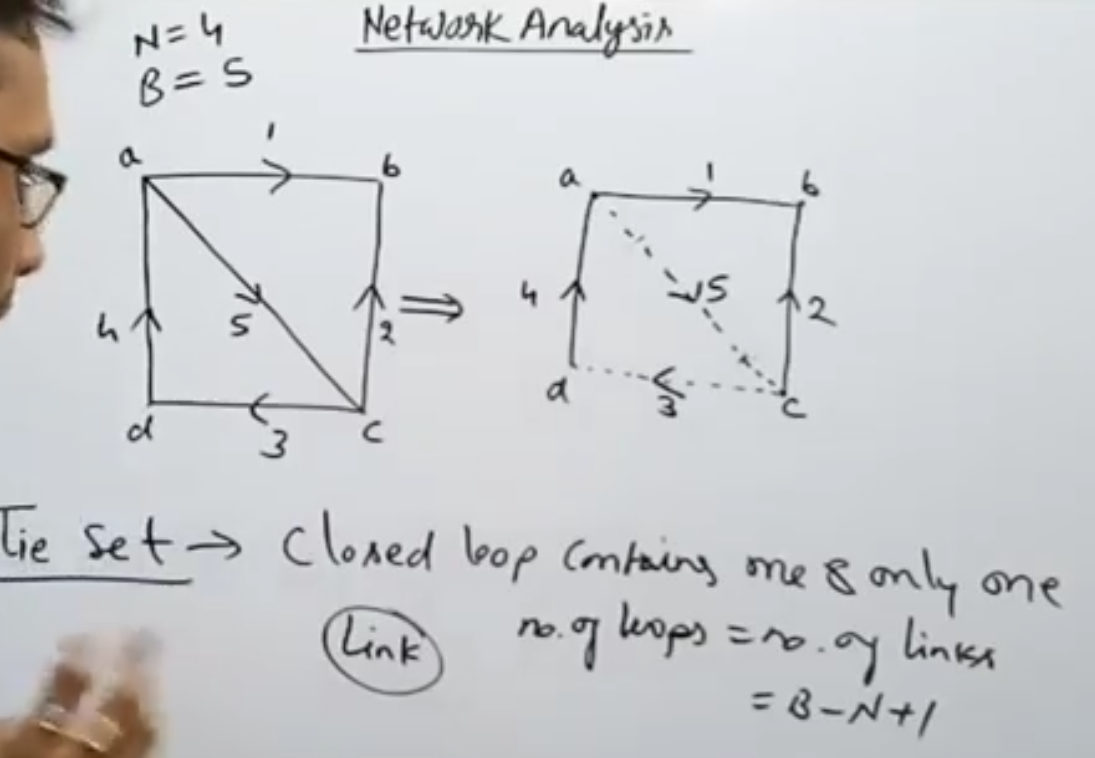 Network Analysis
N = 4
B = 5
a
1
b
4
5
2
d
3
c
⇒
a
1
b
4
5
2
d
3
c
Tie set → Closed loop contains one & only one
Link no. of loops = no. of links
= B - N + 1